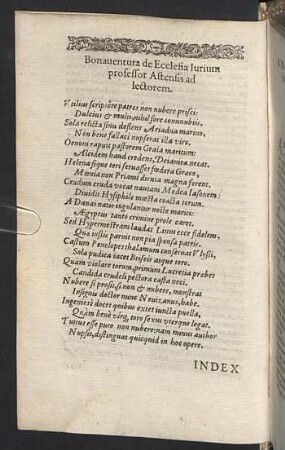 Bonauentura de Ecclesia Iurium
professor Astensis ad
lectorem.
Vtilius scripsêre patres non nubere prisci:
Dulcius & multi, nihil fore connubijs,
Sola relicta sein desiens Ariadna maritus,
Non bene fallaci nupserat illa viro.
Oenoni rapuit pastorem Graia maritum:
Alcidem haud credens, Deianira necat.
Helena signe tori seruasset fœdera Graco,
Mœnia non Priami diruta magna forent.
Crudum cruda vocat nautam Medea Iasonem:
Diuidis Hysiphile mœsta coacta torum.
A Danai natæ iugulantur nocte mariti:
Ægyptus tanto crimine prole caret.
Sed Hypermestram laudas Linum ecce fidelem,
Qua iussis parui non pia sponsa patris.
Castum Penelopes thalamum conseruat Vlyssi,
Sola pudica iacet Briseis atque toro.
Quàm violare torum, primum Lucretia præbet
Candida crudeli pectora casta neci.
Nubere si prosit, si non & nubere, monstrat
Insignis doctor mune Neuizanus, habe.
Ingeniosè docet quibus extet iuncta puella,
Quàm benè virg, toro sexus vterque legat.
Tutius esse puto non nubere: nam manus author
Nupsit, distinguat quicquid in hoc opere.
INDEX